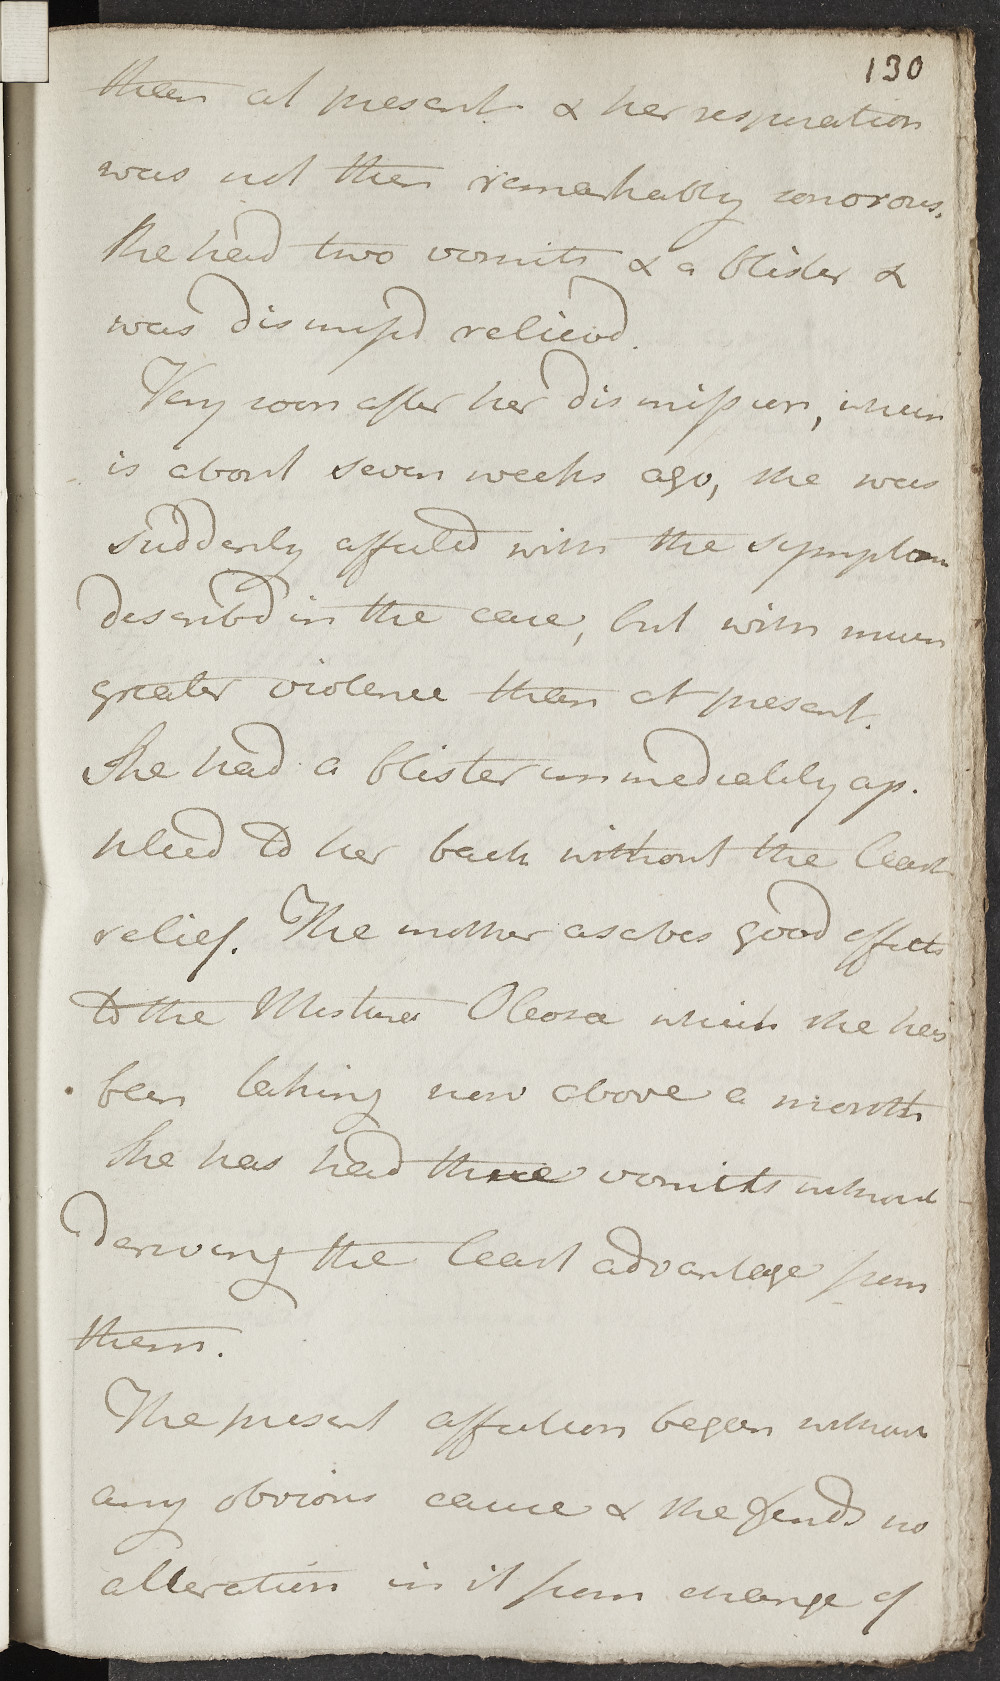 130
then at present & her respiration
was not then remarkably sonorous.
She had two vomits & a blister &
was dismissd relievd.
Very soon after her dismission, which
is about seven weeks ago, she was
suddenly affected with the symptom
describd in the case, but with much
greater violence then at present.
She had a blister immediately ap.
plied to her back without the least
relief. The mother ascbes good effects
to the Mistura Oleosa which she has
been taking now above a month
She has had three vomits without
deriving the least advantage from
them.
The present affection began without
any obvious cause & she finds no
alteration in it from change of